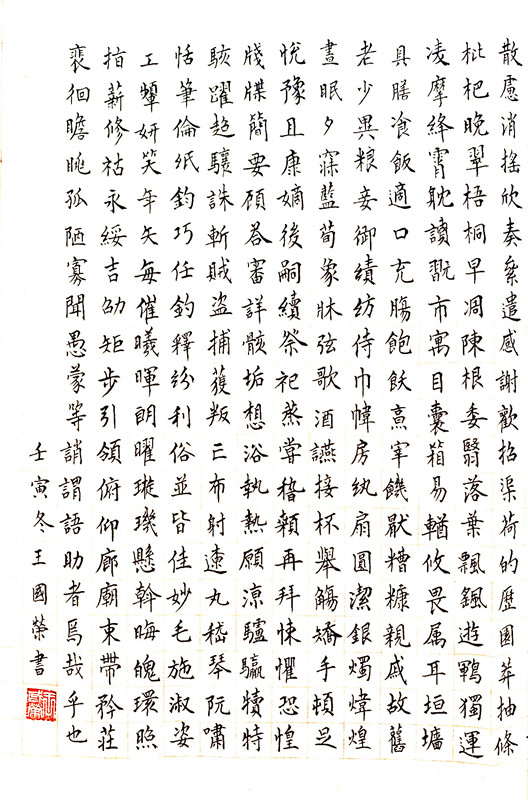 散慮消搖欣奏絫遣慼謝歡招渠荷的歷園莽抽條
枇杷晚翠梧桐早凋陳根委翳落葉飄颻遊鵾獨運
凌摩絳霄耽讀翫市寓目囊箱易輶攸畏属耳垣墻
具膳飡飯適口充腸飽飫烹宰饑厭糟糠親戚故舊
老少異粮妾御績紡侍巾幃房紈扇圓潔銀燭煒煌
晝眠夕寐藍荀象牀弦歌酒讌接杯舉觴矯手頓足
悅豫且康嫡後嗣續祭祀蒸嘗稽顙再拜悚懼恐惶
牋牒簡要顧答審詳骸垢想浴執熱願涼驢騾犢特
駭躍超驤誅斬賊盜捕獲叛亡布射遼丸嵇琴阮嘯
恬筆倫紙鈞巧任釣釋紛利俗並皆佳妙毛施淑姿
工顰妍笑年矢每催曦暉朗曜璇璣懸斡晦魄環照
指薪修祜永綏吉劭矩步引領俯仰廊廟束帶矜莊
裴徊瞻眺孤陋寡聞愚蒙等誚謂語助者焉哉乎也
壬寅冬王國榮書